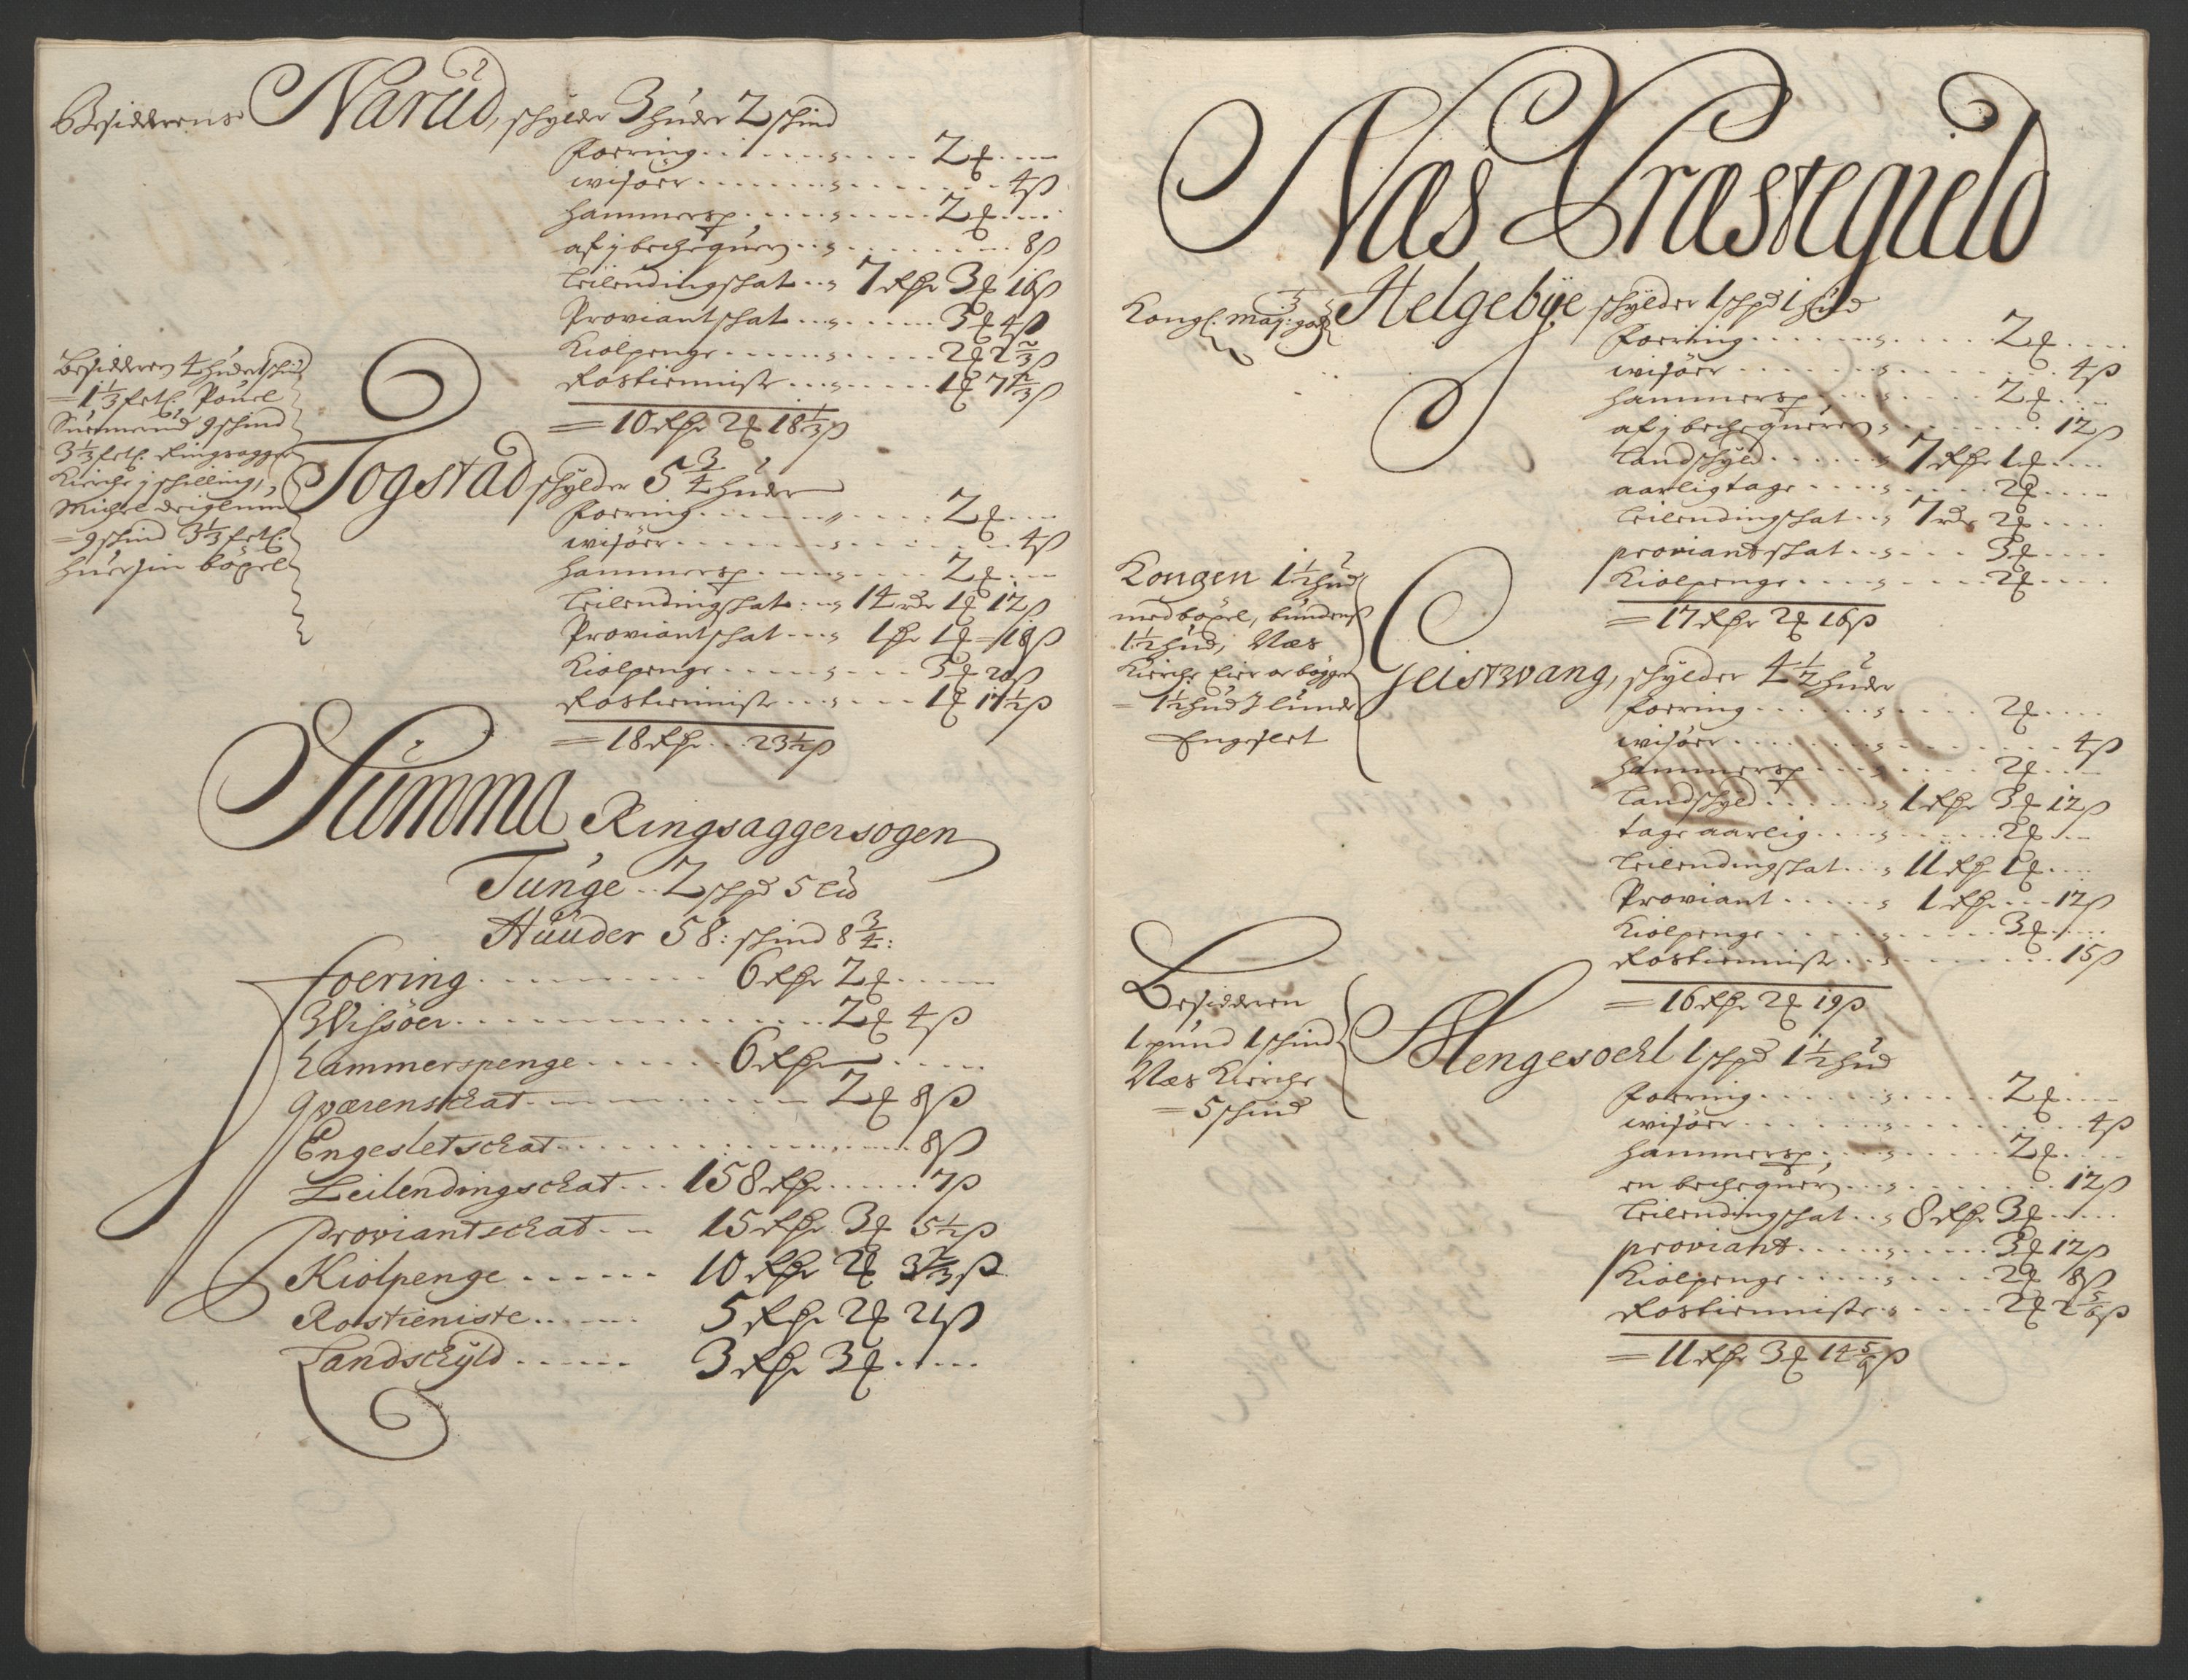 Besidderens Narud, schylder 3 huder 2 schind
foering . . . . 2 ₰ . . .
wisøer . . . . 4 ß
hammersp. . . . . 2 ₰ . . .
af j bechequern . . . . 8 ß
Leilendingschat . . 7 Rdr 3 ₰ 16 ß
Proviantschat . . . . 3 ₰ 4 ß
Kiølpenge . . . . 2 ₰ 2 2/3 ß
Rostienniste . . . . 1 ₰ 7 2/3 ß
= 10 Rdr 2 ₰ 18 1/3 ß
Besidderen 4 huder 1 schind
= 1 1/3 fetl. Pouel
9 schind
3 1/3 fetl. Ringsagger
Kirche j schilling,
Michel
= 9 schind 3 1/3 fetl.
huer sin bøxel
Togstad schylder 5 3/4 huder
foering . . . . 2 ₰ . . .
wisøer . . . . 4 ß
hammersp. . . . . 2 ₰ . . .
Leilendingschat . . 14 rdr 1 ₰ 12 ß
Proviantschat . . . 1 dr 1 ₰ 18 ß
Kiølpenge . . . . 3 ₰ 20 ß
Rostienniste . . . . 1 ₰ 17 1/2 ß
= 18 Rdr . . 23 1/2 ß
Summa Ringsaggersogen
Tunge . . 2 schpd 5 Lid
Huuder 58: schind 8 3/4:
foering . . . . 6 Rdr 2 ₰ . . .
Wisöer . . . . 2 ₰ 4 ß
hammerspenge . . . . 6 Rdr . . .
qværenschat . . . . 2 ₰ 8 ß
Engesletschat . . . . 8 ß
Leilendingschat . . . 158 Rdr . . . 7 ß
Proviantschat . . 15 Rdr 3 ₰ 5 1/2 ß
Kiölpenge . . . . 10 Rdr 2 ₰ 3 2/3 ß
Rostieniste . . . . 5 Rdr 2 ₰ 21 ß
Landschyld . . . . 3 Rdr 3 ₰ . . .
Næs Præstegield
Kongl. Maj: godz Helgebÿe schÿlder 1 schpd 1 hud
foering . . . . 2 ₰ . . .
wisøer . . . . 4 ß
hammersp. . . . . 2 ₰ . . .
af j bechequeren . . . . 12 ß
Landschyld . . . . 7 Rdr 1 ₰ . . .
aarligtage . . . . 2 ₰ . . .
Leilendingschat . . 7 rdr 2 ₰ . . .
proviantschat . . . . 3 ₰ . . .
Kiølpenge . . . . 2 ₰ . . .
= 17 Rdr 2 ₰ 16 ß
Kongen 1 1/2 hud
med bøxel, bundens
1 1/2 hud, Næs
Kirche Eier or bøgger
= 1 1/2 hud J lunde
Engeslet
Geistzvang, schylder 4 1/2 huder
foering . . . . 2 ₰ . . .
wisøer . . . . 4 ß
hammersp . . . . 2 ₰ . . .
Landschyld . . . . 1 Rdr 3 ₰ 12 ß
tage aarlig . . . . 2 ₰ . . .
Leilendingschat . . . 11 Rdr 1 ₰ . . .
Proviant . . . . 1 Rdr . . . 12 ß
Kiølpenge . . . . 3 ₰ . . .
Rostienniste . . . . 15 ß
= 16 Rdr 2 ₰ 19 ß
Besidderen
1 pund 1 schind
Næs Kirche
= 5 schind
Hengesoehl 1 schpd 1 1/2 hud
foering . . . . 2 ₰ . . .
wisøer . . . . 4 ß
hammersp. . . . . 2 ₰ . . .
en bechequern . . . . 12 ß
Leilendingschat . . 8 Rdr 3 ₰ . . .
proviant . . . . 3 ₰ 12 ß
Kiølpenge . . . . 2 ₰ 8 ß
Rostienniste . . . . 2 ₰ 2 5/6 ß
= 11 Rdr 3 ₰ 14 5/6 ß